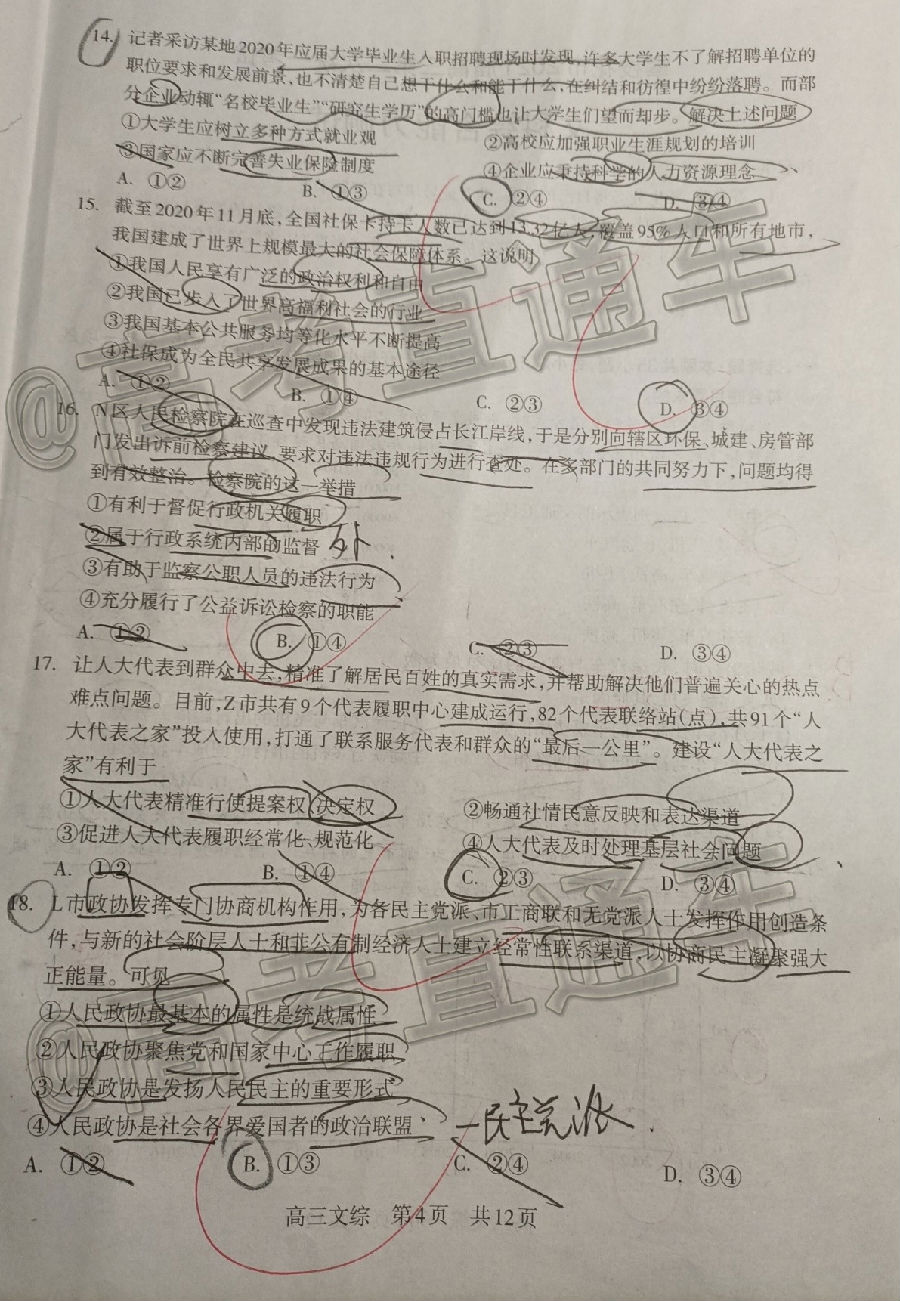 14. 记者采访某地2020年应届大学毕业生入职招聘现场时发现，许多大学生不了解招聘单位的
职位要求和发展前景，也不清楚自己想干什么和能干什么，在纠结和彷徨中纷纷落聘。而部
分企业动辄“名校毕业生”“研究生学历”的高门槛也让大学生们望而却步。解决上述问题
①大学生应树立多种方式就业观 ②高校应加强职业生涯规划的培训
③国家应不断完善失业保险制度 ④企业应秉持科学的人力资源理念
A. ①② B. ①③ C. ②④ D. ③④
15. 截至2020年11月底，全国社保卡持卡人数已达到13.32亿人，覆盖95%人口和所有地市，
我国建成了世界上规模最大的社会保障体系。这说明
①我国人民享有广泛的政治权利和自由
②我国已步入了世界高福利社会的行业
③我国基本公共服务均等化水平不断提高
④社保成为全民共享发展成果的基本途径
A. ①② B. ①④ C. ②③ D. ③④
16. N区人民检察院在巡查中发现违法建筑侵占长江岸线，于是分别向辖区环保、城建、房管部
门发出诉前检察建议，要求对违法违规行为进行查处。在多部门的共同努力下，问题均得
到有效整治。检察院的这一举措
①有利于督促行政机关履职
②属于行政系统内部的监督 外
③有助于监察公职人员的违法行为
④充分履行了公益诉讼检察的职能
A. ①② B. ①④ C. ②③ D. ③④
17. 让人大代表到群众中去，精准了解居民百姓的真实需求，并帮助解决他们普遍关心的热点
难点问题。目前，Z市共有9个代表履职中心建成运行，82个代表联络站（点），共91个“人
大代表之家”投入使用，打通了联系服务代表和群众的“最后一公里”。建设“人大代表之
家”有利于
①人大代表精准行使提案权、决定权 ②畅通社情民意反映和表达渠道
③促进人大代表履职经常化、规范化 ④人大代表及时处理基层社会问题
A. ①② B. ①④ C. ②③ D. ③④
18. L市政协发挥专门协商机构作用，为各民主党派、市工商联和无党派人士发挥作用创造条
件，与新的社会阶层人士和非公有制经济人士建立经常性联系渠道，以协商民主凝聚强大
正能量。可见
①人民政协最基本的属性是统战属性
②人民政协聚焦党和国家中心工作履职
③人民政协是发扬人民民主的重要形式
④人民政协是社会各界爱国者的政治联盟 一民主党派
A. ①② B. ①③ C. ②④ D. ③④
高三文综 第4页 共12页
@高考直通车
@高考直通车